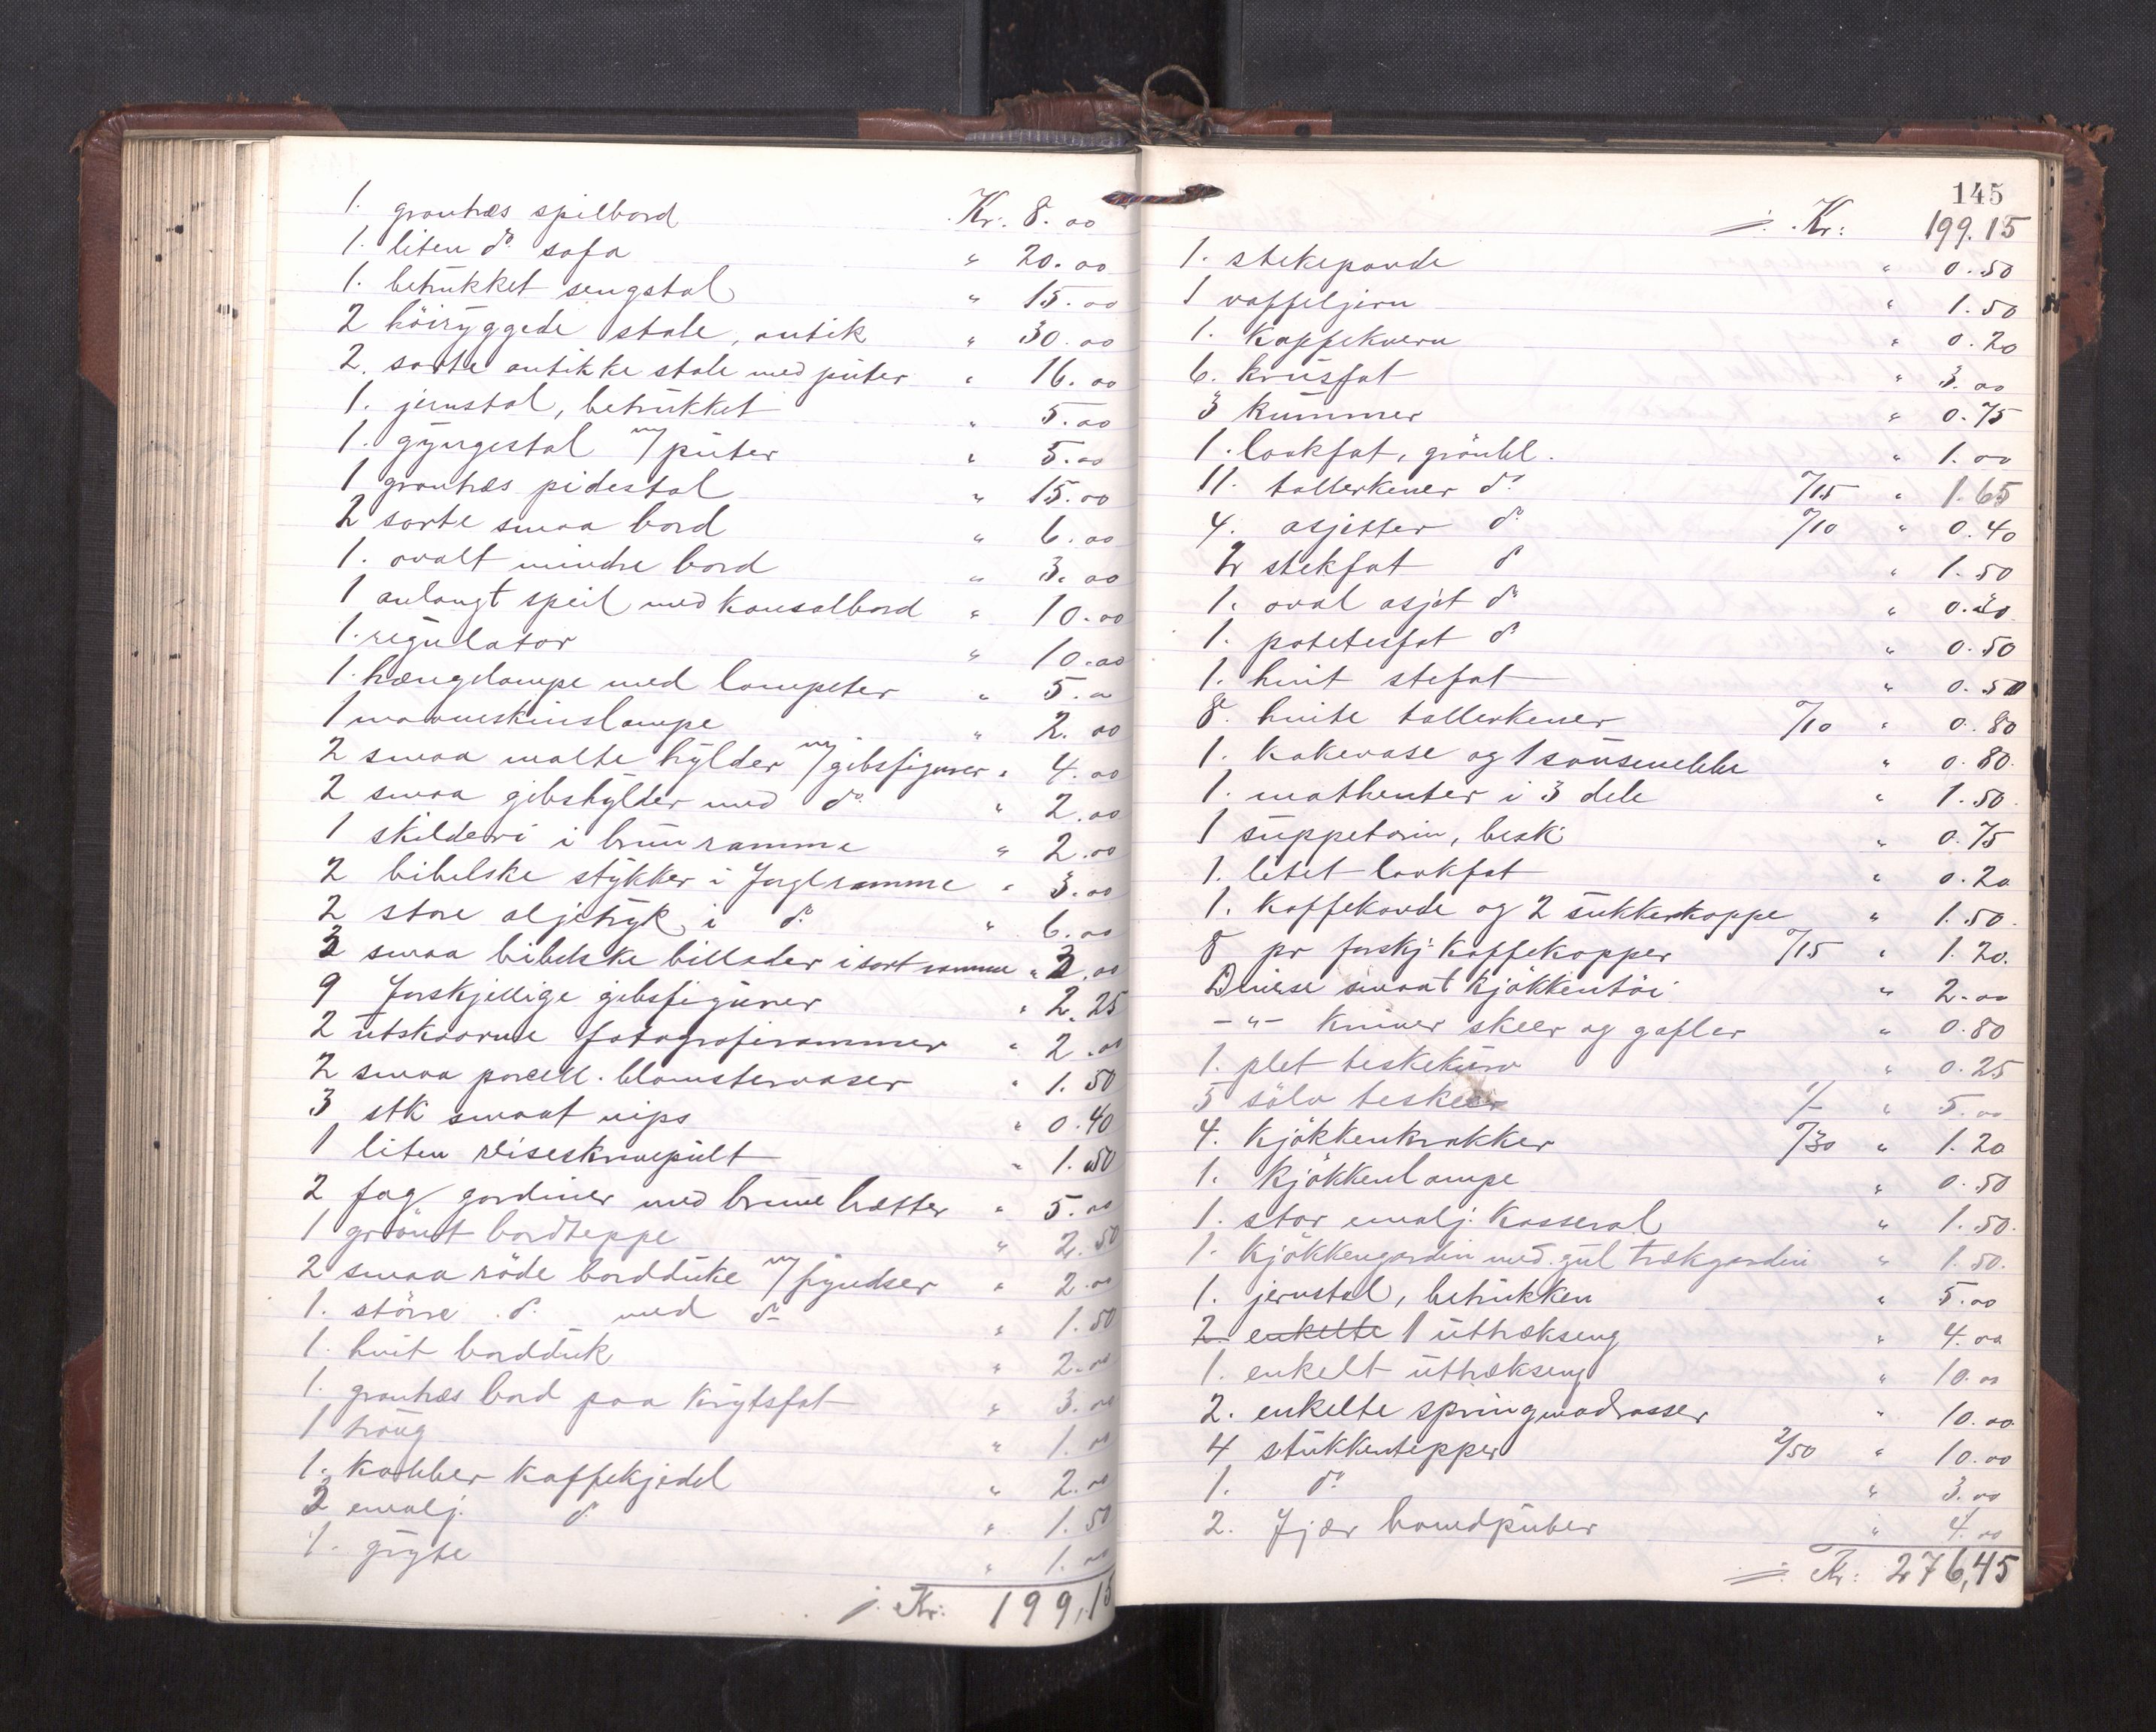 1. grantræs spilbord Kr. 8.00
1. liten do sofa " 20.00
1. betrukket sengstol " 15.00
2 höiryggede stole, antik " 30.00
2. sorte antikke stole med puter " 16.00
1. jernstol, betrukket " 5.00
1. gyngestol m/ puter " 5.00
1 grantræs pidestal " 15.00
2 sorte smaa bord " 6.00
1. ovalt mindre bord " 3.00
1 avlangt speil med konsolbord " 10.00
1. regulator " 10.00
1. hængelampe med lampeter " 5.00
1 maaneskinslampe " 2.00
2 smaa malte hylder m/ gibsfigurer " 4.00
2 smaa gibshylder med do " 2.00
1 skilderi i brun ramme " 2.00
2 bibelske stykker i forgl ramme " 3.00
2 store oljetryk i do " 6.00
3 smaa bibelske billeder i sort ramme " 3.00
9 forskjellige gibsfigurer " 2.25
2 utskaarne fotografirammer " 2.00
2 smaa porcell. blomstervaser " 1.50
3 stk smaat nips " 0.40
1 liten reiseskrivepult " 1.50
2 fag gardiner med brune hætter " 5.00
1 grönt bordteppe " 2.50
2 smaa röde bordduke m/ fryndser " 2.00
1. större do med do " 1.50
1. hvit bordduk " 2.00
1. grantræs bord paa krydsfot " 3.00
1 traug " 1.00
1. kobber kaffekjedel " 2.00
2 emalj. do " 1.50
1. gryte " 1.00
:/: Kr: 199,15
145
:/: Kr: 199.15
1. stekepande " 0.50
1 vaffeljern " 1.50
1. Kaffekvern " 0.20
6. krusfat " 3.00
3 kummer " 0.75
1. lookfat, grönbl. " 1.00
11. tallerkener do 7/15 " 1.65
4. asjetter do 7/10 " 0.40
2 stekfat do " 1.50
1. oval asjet do " 0.20
1. potetesfat do " 0.50
1. hvit stefat " 0.50
8. hvite tallerkener 7/10 " 0.80
1. kakevase og 1 sausenebbe " 0.80
1. mathenter i 3 dele " 1.50
1 suppeterin, besk: " 0.75
1. litet lookfat " 0.20
1. Kaffekande og 2 sukkerkoppe " 1.50
8 pr forskj kaffekopper 7/15 " 1.20
Diverse smaat kjökkentöi " 2.00
-"- kniver skeer og gafler " 0.80
1. plet teskekurv " 0.25
5 sölv teskeer 1/- " 5.00
4. kjökkenkrakker 7/30 " 1.20
1. kjökkenlampe " 0.50
1. stor emalj. kasserol " 1.50
1. kjökkengardin med gul trækgardin " 1.50
1. jernstol, betrukken " 5.00
2. enkelte 1 uttrækseng " 4.00
1. enkelt uttrækseng " 10.00
2. enkelte springmadrasser " 10.00
4 stukkentepper 2/50 " 10.00
1. do " 3.00
2. Fjær hovedputer " 4.00
:/: Kr: 276,45